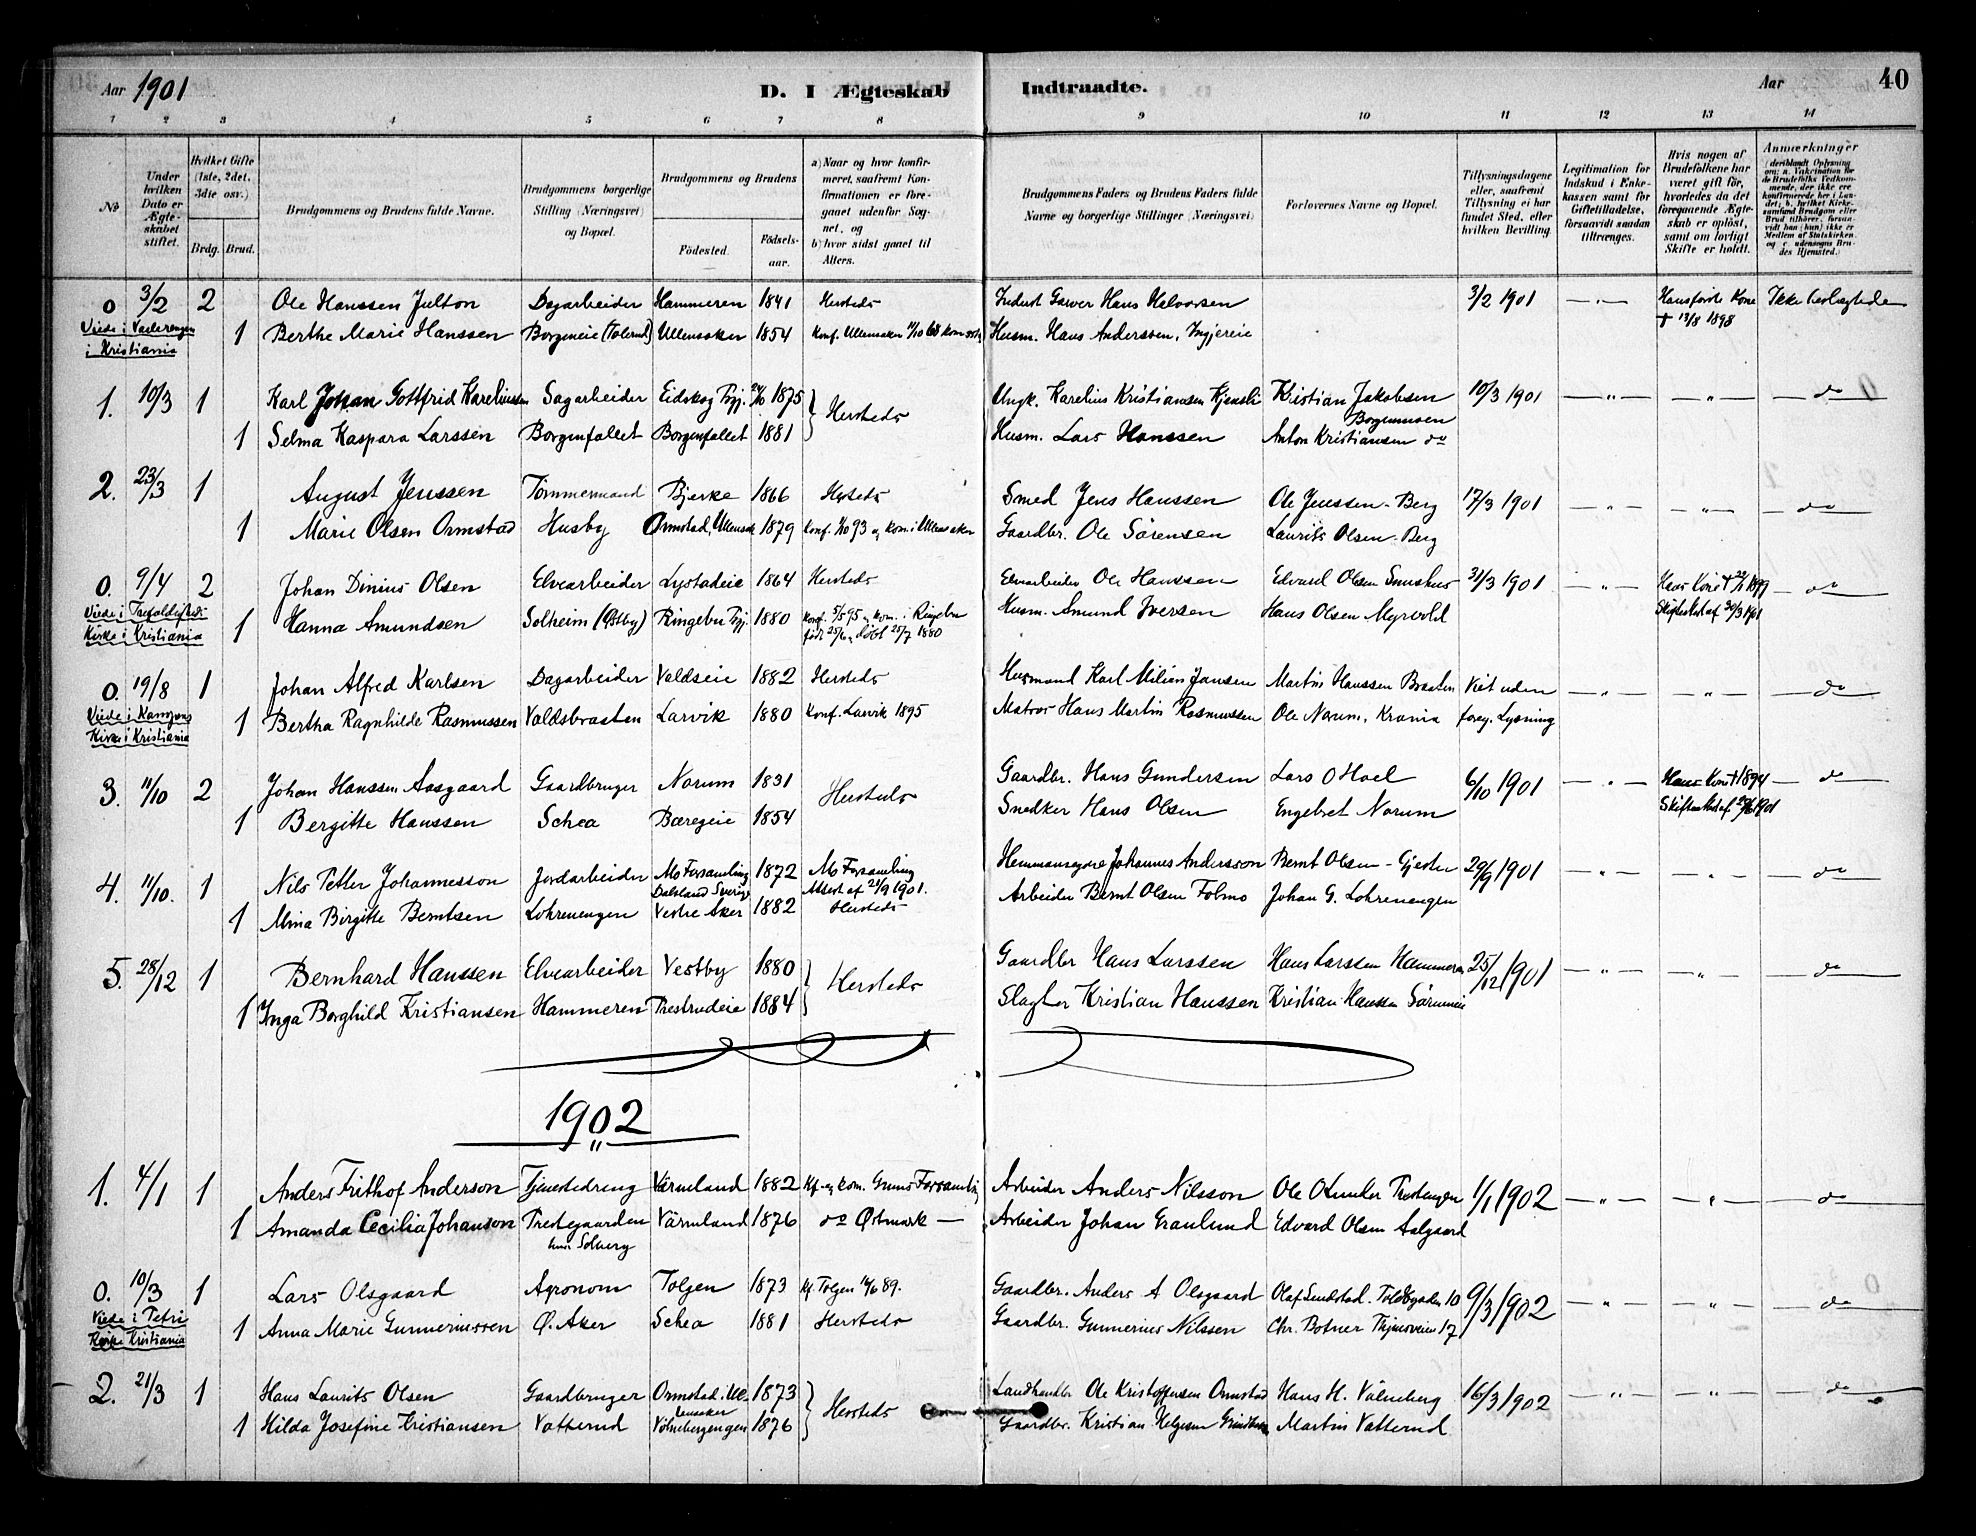 Aar 1901
D. I Ægteskab Indtraadte.
Aar 40
1 2 3 4 5 6 7 8 9 10 11 12 13 14
№
Under hvilken Dato er Ægteskabet stiftet.
Hvilket Gifte (1ste, 2det, 3die osv.)
Brdg. Brud.
Brudgommens og Brudens fulde Navne.
Brudgommens borgerlige Stilling (Næringsvei) og Bopæl.
Brudgommens og Brudens
Fødested. Fødselsaar.
a) Naar og hvor konfirmeret, saafremt Konfirmationen er foregaaet udenfor Sognet, og
b) hvor sidst gaaet til Alters.
Brudgommens Faders og Brudens Faders fulde Navne og borgerlige Stillinger (Næringsvei)
Forlovernes Navne og Bopæl.
Tillysningsdagene eller, saafremt Tillysning ei har fundet Sted, efter hvilken Bevilling.
Legitimation for Indskud i Enkekassen samt for Giftetilladelse, forsaavidt saadan tiltrænges.
Hvis nogen af Brudefolkene har været gift før, hvorledes da det foregaaende Ægteskab er opløst, samt om lovligt Skifte er holdt.
Anmærkninger
0 3/2 2 Ole Hanssen Julton Dagarbeider Hammeren 1841 Hersteds Hans Halvorsen 3/2 1901 — " — Hans første Kone Ikke beslægtede
Viede i Vaalerengen 1 Berthe Marie Hanssen Borgeneie Ullensaker 1854 Konf. Ullensaker Husm. Hans Anderssen, † 12/8 1898
i Kristiania
1. 10/3 1 Karl Johan Gottfrid Kareliussen Sagarbeider Eidskog Prgj. 24/10 1875 Hersteds Ungk. Karelius Kristiansen Kjensli Kristian Jakobsen 10/3 1901 — " — — " — do
Borgenmoen
1 Selma Kaspara Larssen Borgenfallet Borgenfallet 1881 Husm. Lars Hanssen Anton Kristiansen do
2. 23/3 1 August Jenssen Tømmermand Bjerke 1866 Hersteds Smed Jens Hanssen Ole Jenssen - Berg 17/3 1901 — " — — " — do
1 Marie Olsen Ormstad Husby Ormstad, Ullensak 1879 Konf. 1/10 93 og kom. i Ullensaker Gaardbr. Ole Sørensen Laurits Olsen - Berg
0. 9/4 2 Johan Dinius Olsen Elvearbeider Lystadeie 1864 Hersteds Elvearbeider Ole Hanssen Edvard Olsen 31/3 1901 — " — do
Viede i Trefoldigheds 1 Hanna Amundsen Solheim (Østby) Ringebu Prgj. 1880 Konf. 5/5 95 og kom. i Ringebu Husm. Amund Iversen Hans Olsen Myrvold Skifteattest af 30/3 1901
Kirke i Kristiania født 25/6, døbt 25/7 1880
0. 19/8 1 Johan Alfred Karlsen Dagarbeider Valdseie 1882 Hersteds Husmand Karl Milian Jansen Martin Hanssen Braaten Viet uden — " — — " — do
Viede i Kampens 1 Bertha Ragnhilde Rasmussen Valdsbraaten Larvik 1880 Konf. Larvik 1895 Matros Hans Martin Rasmussen Ole Norum, Krania foreg. Lysning
Kirke i Kristiania
3. 11/10 2 Johan Hanssen Aasgaard Gaardbruger Norum 1831 Hersteds Gaardbr. Hans Gundersen Lars O Hoel 6/10 1901 — " — Hans Kone † 1894 do
1 Bergitte Hanssen Schea Bæregeie 1854 Snedker Hans Olsen Engebret Norum
4. 11/10. 1 Nils Petter Johannesson Jordarbeider Mo Forsamling 1872 Mo Forsamling Hemmansegare Johannes Andersson Bernt Olsen - 29/9 1901 — " — — " — do
Dalsland Sverige Attest af 21/9 1901.
1 Mina Birgitte Berntsen Lohrenengen Vestre Aker 1882 Hersteds Arbeider Bernt Olsen Folmo Johan G. Lohrenengen
5. 28/12 1 Bernhard Hanssen Elvearbeider Vestby 1880 Hersteds Gaardbr Hans Larssen Hans Larssen Hammeren 25/12 1901 — " — — " — do
1 Inga Borghild Kristiansen Hammeren Prestrudeie 1884 Slagter Kristian Hanssen Kristian Hanssen
1902
1. 4/1 1 Anders Frithof Anderson Tjenestedreng Värmland 1882 Kf. og kom. Forsamling Arbeider Anders Nilsson 1/1 1902 — " — — " — do
1 Amanda Cecilia Johanson Prestegaarden Värmland 1876 do Østmark — Arbeider Johan Granlund Edvard Olsen Aalgaard
Solberg
0. 10/3 1 Lars Olsgaard Agronom Tolgen 1873 Kf. Tolgen 89. Gaardbr. Anders A Olsgaard Olaf Sundstad. Toldbgaden 10 9/3 1902 — " — — " — do
Viede i Petri 1 Anna Marie Gunneriussen Ø. Aker Schea 1881 Hersteds Gaardbr. Gunnerius Nilssen Chr. Botner 17
Kirke Kristiania
2. 21/3 1 Hans Laurits Olsen Gaardbruger Ormstad i Ul- 1873 Hersteds Landhandler Ole Kristoffersen Ormstad Hans H. Valneberg 16/3 1902 — " — — " — do
lensaker
1 Hilda Josefine Kristiansen Vatterud 1876 Gaardbr. Kristian Helgesen Martin Vatterud